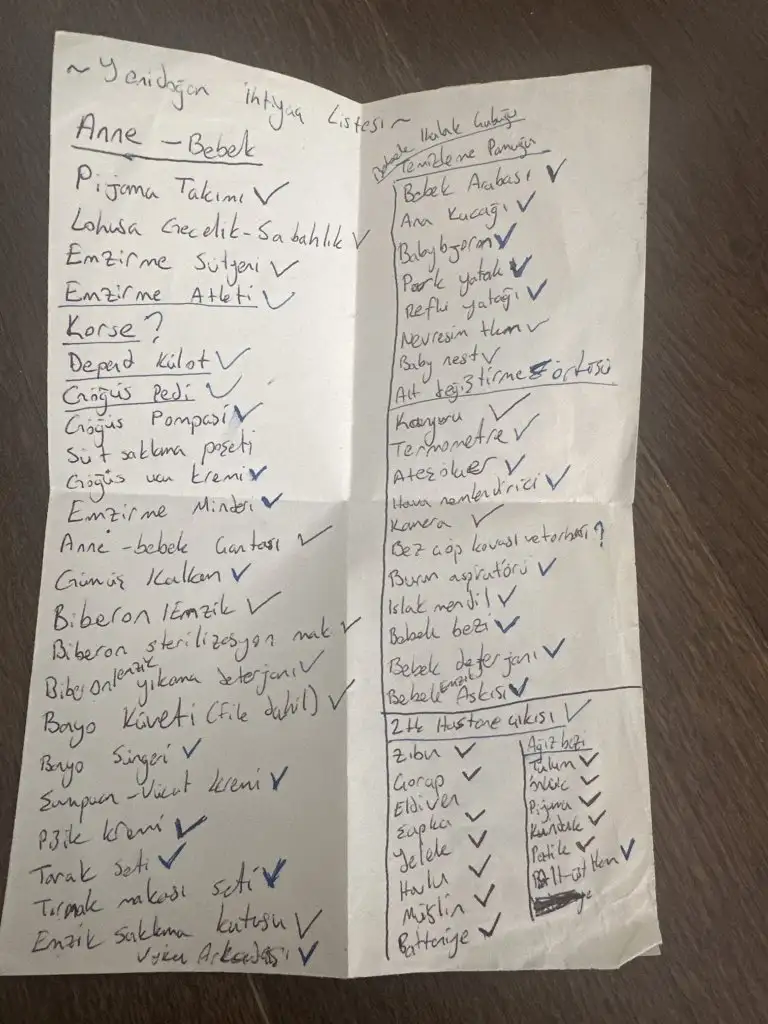 ~ Yenidoğan İhtiyaç Listesi ~
Anne - Bebek
Pijama Takımı ✓
Lohusa Gecelik-Sabahlık ✓
Emzirme Sütyeni ✓
Emzirme Atleti ✓
Korse?
Depend Külot ✓
Göğüs Pedi ✓
Göğüs Pompası ✓
Süt saklama poşeti
Göğüs ucu kremi ✓
Emzirme Minderi ✓
Anne-bebek Çantası ✓
Gümüş Kalkan ✓
Biberon / Emzik ✓
Biberon sterilizasyon mak ✓
Biberon/emzik yıkama deterjanı ✓
Banyo Küveti (File dahil) ✓
Banyo Süngeri ✓
Şampuan-Vücut kremi ✓
Pişik kremi ✓
Tarak Seti ✓
Tırnak makası seti ✓
Emzik saklama kutusu ✓
Uyku Arkadaşı ✓
Bebek Kulak Çubuğu
Temizleme Pamuğu
Bebek Arabası ✓
Ana Kucağı ✓
Babybjorn ✓
Park yatak ✓
Reflü yatağı ✓
Nevresim tkm ✓
Baby nest ✓
Alt değiştirme örtüsü
Koruyucu ✓
Termometre ✓
Ateşölçer ✓
Hava nemlendirici ✓
Kamera ✓
Bez çöp kovası ve torbası?
Burun aspiratörü ✓
Islak mendil ✓
Bebek bezi ✓
Bebek deterjanı ✓
Bebek Emzik Askısı ✓
Hastane çıkışı ✓
Zıbın ✓
Çorap ✓
Eldiven
Şapka ✓
Yelek ✓
Havlu ✓
Müslin ✓
Battaniye ✓
Ağız bezi
Tulum ✓
Önlük ✓
Pijama ✓
Kundak ✓
Patik ✓
Alt-üst tkm ✓